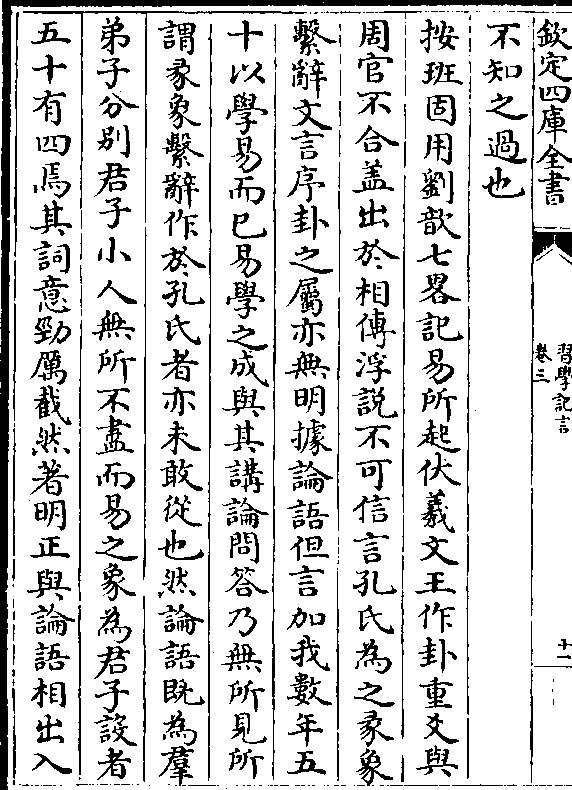 欽定四庫全書
習學記言
卷三
十一
不知之過也
按班固用劉歆七畧記易所起伏羲文王作卦重爻與
周官不合盖出於相傳浮說不可信言孔氏為之彖象
繫辭文言序卦之屬亦無明據論語但言加我數年五
十以學易而已易學之成與其講論問答乃無所見所
謂彖象繫辭作於孔氏者亦未敢從也然論語既為羣
弟子分别君子小人無所不盡而易之象為君子設者
五十有四焉其詞意勁厲截然著明正與論語相出入